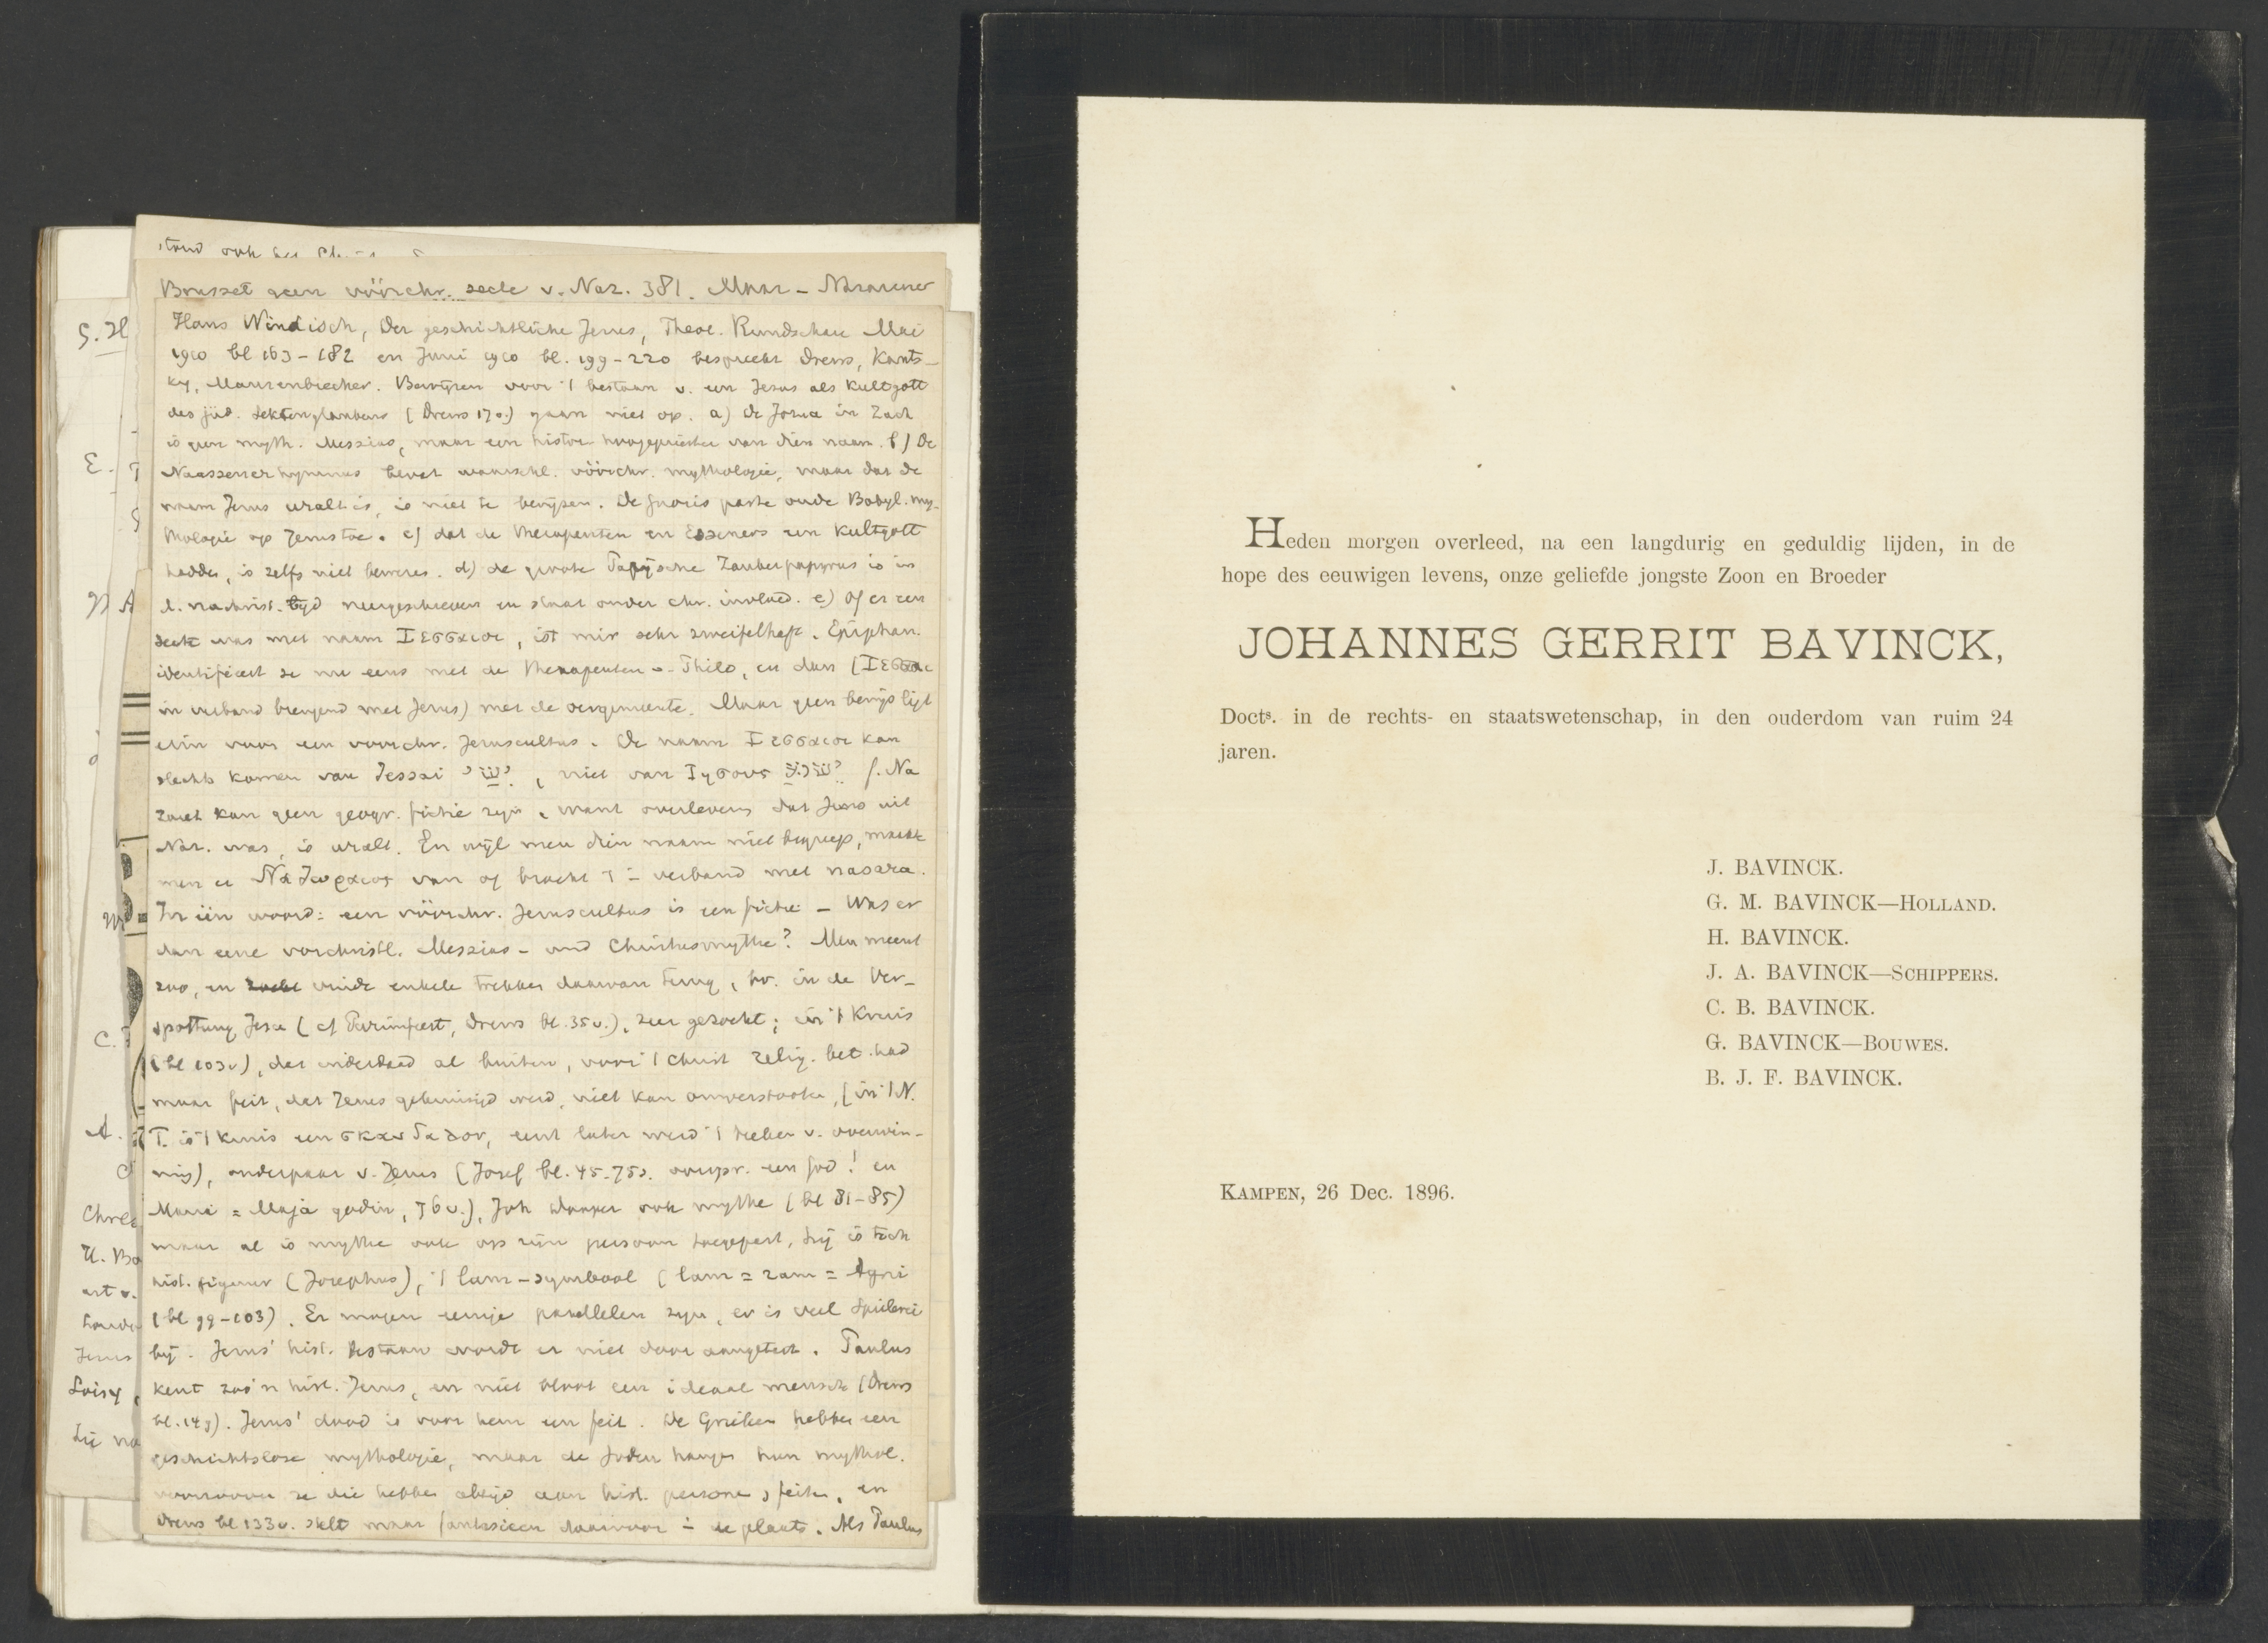 Bousset geen vóórchr. secte v. Naz. 381. Maar - Nazarener
Hans Windisch, Der geschichtliche Jesus, Theol. Rundschau Mai
1910 bl 163-182 en Juni 1910 bl. 199-220 bespreekt Drews, Kauts-
ky, Maurenbrecher. Bewijzen voor 't bestaan v. een Jesus als Kultgott
des jüd. Sektenglaubens (Drews 17v.) gaan niet op. a) de Jozua in Zach
is geen myth. Messias, maar een histor. hoogepriester van dien naam. b) De
Naassenerhymnus bevat waarschl. vóórchr. mythologie, maar dat de
naam Jesus uralt is, is niet te bewijzen. De gnosis paste oude Babyl. my-
thologie op Jesus toe. c) dat de Therapeuten en Esseners een Kultgott
hadden, is zelfs niet beweren. d) de groote Parijsche Zauberpapyrus is in
d. nachrist. tijd neergeschreven en staat onder chr. invloed. e) Of er een
secte was met naam Ιεσσαιοι, ist mir sehr zweifelhaft. Epiphan.
identificeert ze nu eens met de Therapeuten v. Philo, en dan (Ιεσσαι
in verband brengend met Jesus) met de oergemeente. Maar geen bewijs ligt
erin voor een voorchr. Jesuscultus. De naam Ιεσσαιοι kan
slechts komen van Jessai ישי, niet van Ιησους ישוע f. Na
zaret kan geen geogr. fictie zijn, want overlevering dat Jesus uit
Naz. was, is uralt. En wijl men dien naam niet begreep, maakte
men er Ναζωραιος van of bracht 't i verband met nasara.
In één woord: een vóórchr. Jesuscultus is een fictie - Was er
dan eene vorchristl. Messias- und Christusmythe? Men meent
zoo, en vindt enkele trekken daarvan terug, bv. in de Ver-
spottung Jesu (cf Purimfeest, Drews bl. 35v.), zeer gezocht; in 't Kruis
(bl 103v), dat inderdaad al buiten, voor 't Christ relig. bet. had
maar feit, dat Jesus gekruisigd werd, niet kan omverstooten, (in 't N.
T. is 't kruis een σκανδαλον, eerst later werd 't teeken v. overwin-
ning), ouderpaar v. Jesus (Jozef bl. 45. 75v. oorspr. een god! en
Maria = Maja godin, 76v.), Joh dooper ook mythe (bl 81-85)
maar al is mythe ook op zijn persoon toegepast, hij is toch
hist. figuur (Josephus), 't lam-symbool (lam = ram = Agni
(bl 99-103). Er mogen eenige parallelen zijn, er is veel Spielerei
bij. Jesus' hist. bestaan wordt er niet door aangetast. Paulus
kent zoo'n hist. Jesus, en niet bloot een ideaal mensch (Drews
bl. 149). Jesus' dood is voor hem een feit. De Grieken hebben een
geschichtslose mythologie, maar de Joden hangen hun mythol.
voorzoover ze die hebben altijd aan hist. personen, feiten, en
Drews bl 133v. stelt maar fantasieen daarvoor i de plaats. Als Paulus
Heden morgen overleed, na een langdurig en geduldig lijden, in de
hope des eeuwigen levens, onze geliefde jongste Zoon en Broeder
JOHANNES GERRIT BAVINCK,
Docts. in de rechts- en staatswetenschap, in den ouderdom van ruim 24
jaren.
J. BAVINCK.
G. M. BAVINCK—HOLLAND.
H. BAVINCK.
J. A. BAVINCK—SCHIPPERS.
C. B. BAVINCK.
G. BAVINCK—BOUWES.
B. J. F. BAVINCK.
KAMPEN, 26 Dec. 1896.